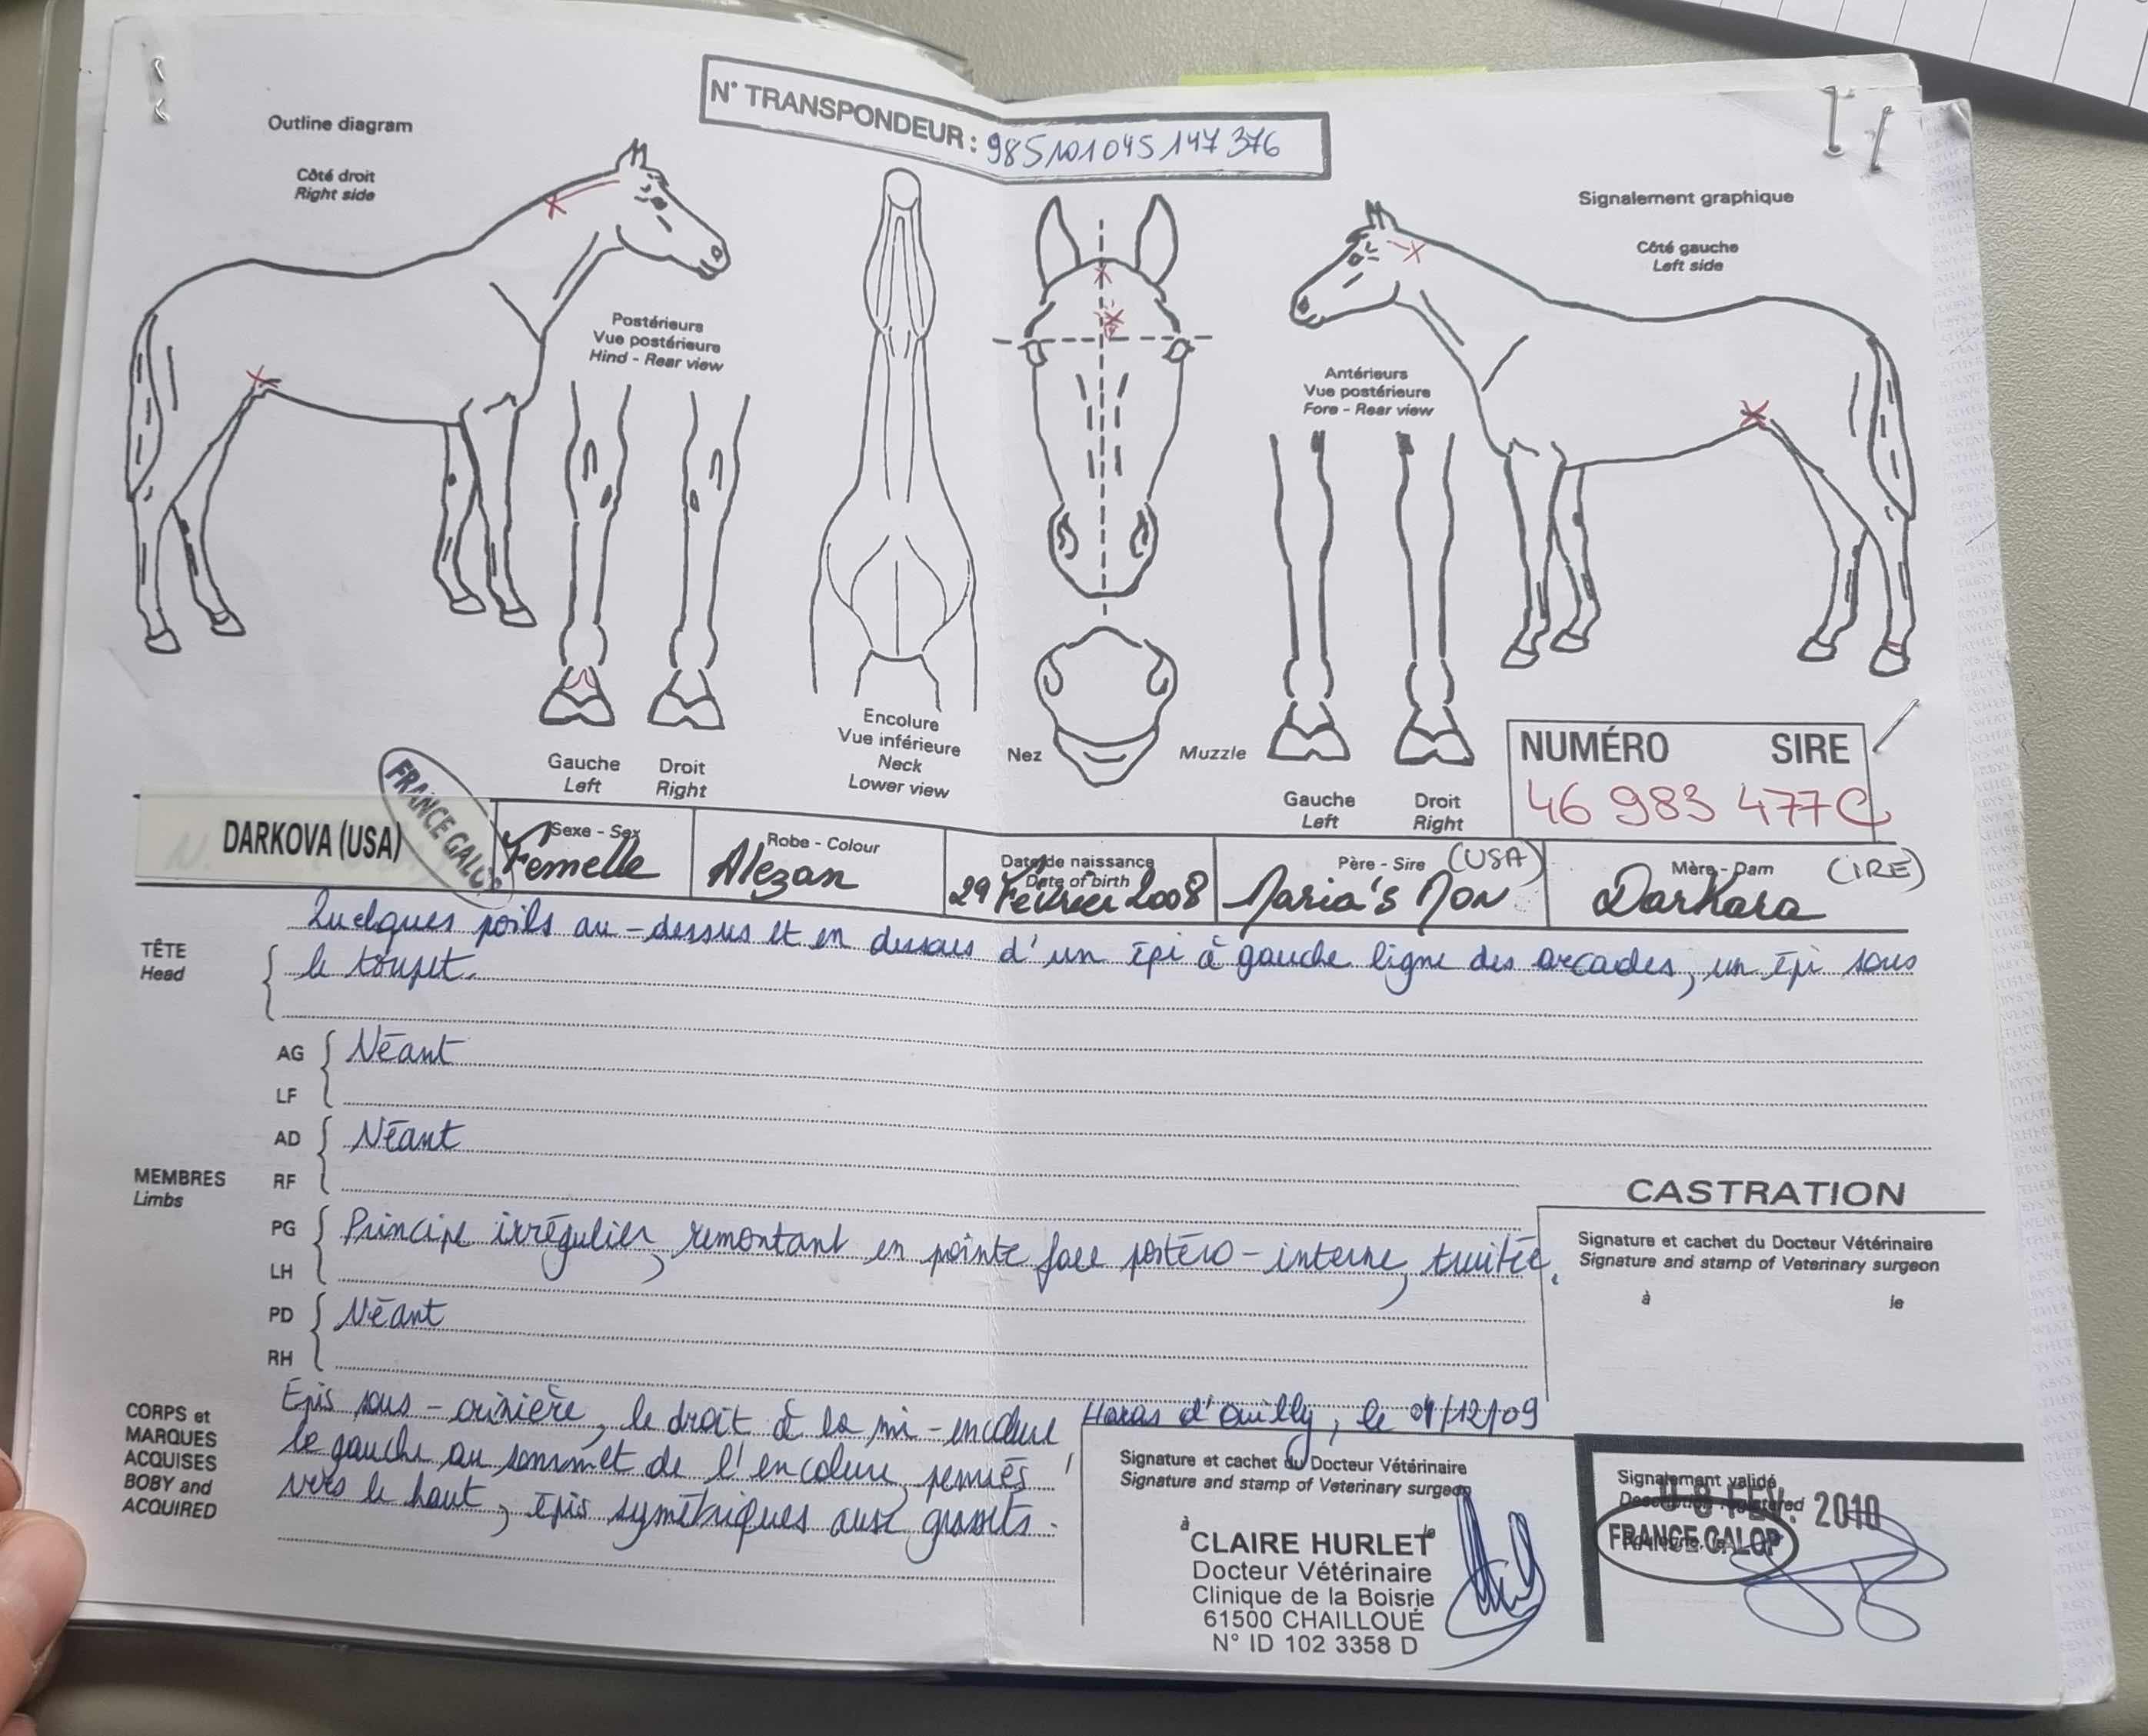 N° TRANSPONDEUR : 985101045147376
Outline diagram
Côté droit
Right side
Signalement graphique
Côté gauche
Left side
Postérieurs
Vue postérieure
Hind - Rear view
Antérieurs
Vue postérieure
Fore - Rear view
Gauche
Left
Droit
Right
Encolure
Vue inférieure
Neck
Lower view
Nez
Muzzle
Gauche
Left
Droit
Right
NUMÉRO SIRE
46 983 477C
DARKOVA (USA)
FRANCE GALOP
Sexe - Sex
Femelle
Robe - Colour
Alezan
Date de naissance
Date of birth
29 Février 2008
Père - Sire (USA)
Maria's Mon
Mère - Dam (IRE)
Darkara
TÊTE
Head
Quelques poils au-dessus et en dessous d'un épi à gauche ligne des arcades, un épi sous
le toupet.
AG Néant
LF
AD Néant
MEMBRES
Limbs
RF
PG Principe irrégulier, remontant en pointe face postéro-interne, truitée.
LH
PD Néant
RH
CASTRATION
Signature et cachet du Docteur Vétérinaire
Signature and stamp of Veterinary surgeon
à le
CORPS et
MARQUES
ACQUISES
BOBY and
ACQUIRED
Epis sous-crinière, le droit à la mi-encolure,
le gauche au sommet de l'encolure, pennés
vers le haut, épis symétriques aux grassets.
Haras d'Ouilly, le 04/12/09
Signature et cachet du Docteur Vétérinaire
Signature and stamp of Veterinary surgeon
à le
CLAIRE HURLET
Docteur Vétérinaire
Clinique de la Boisrie
61500 CHAILLOUÉ
N° ID 102 3358 D
Signalement validé
Description registered
08 FEV. 2010
FRANCE GALOP